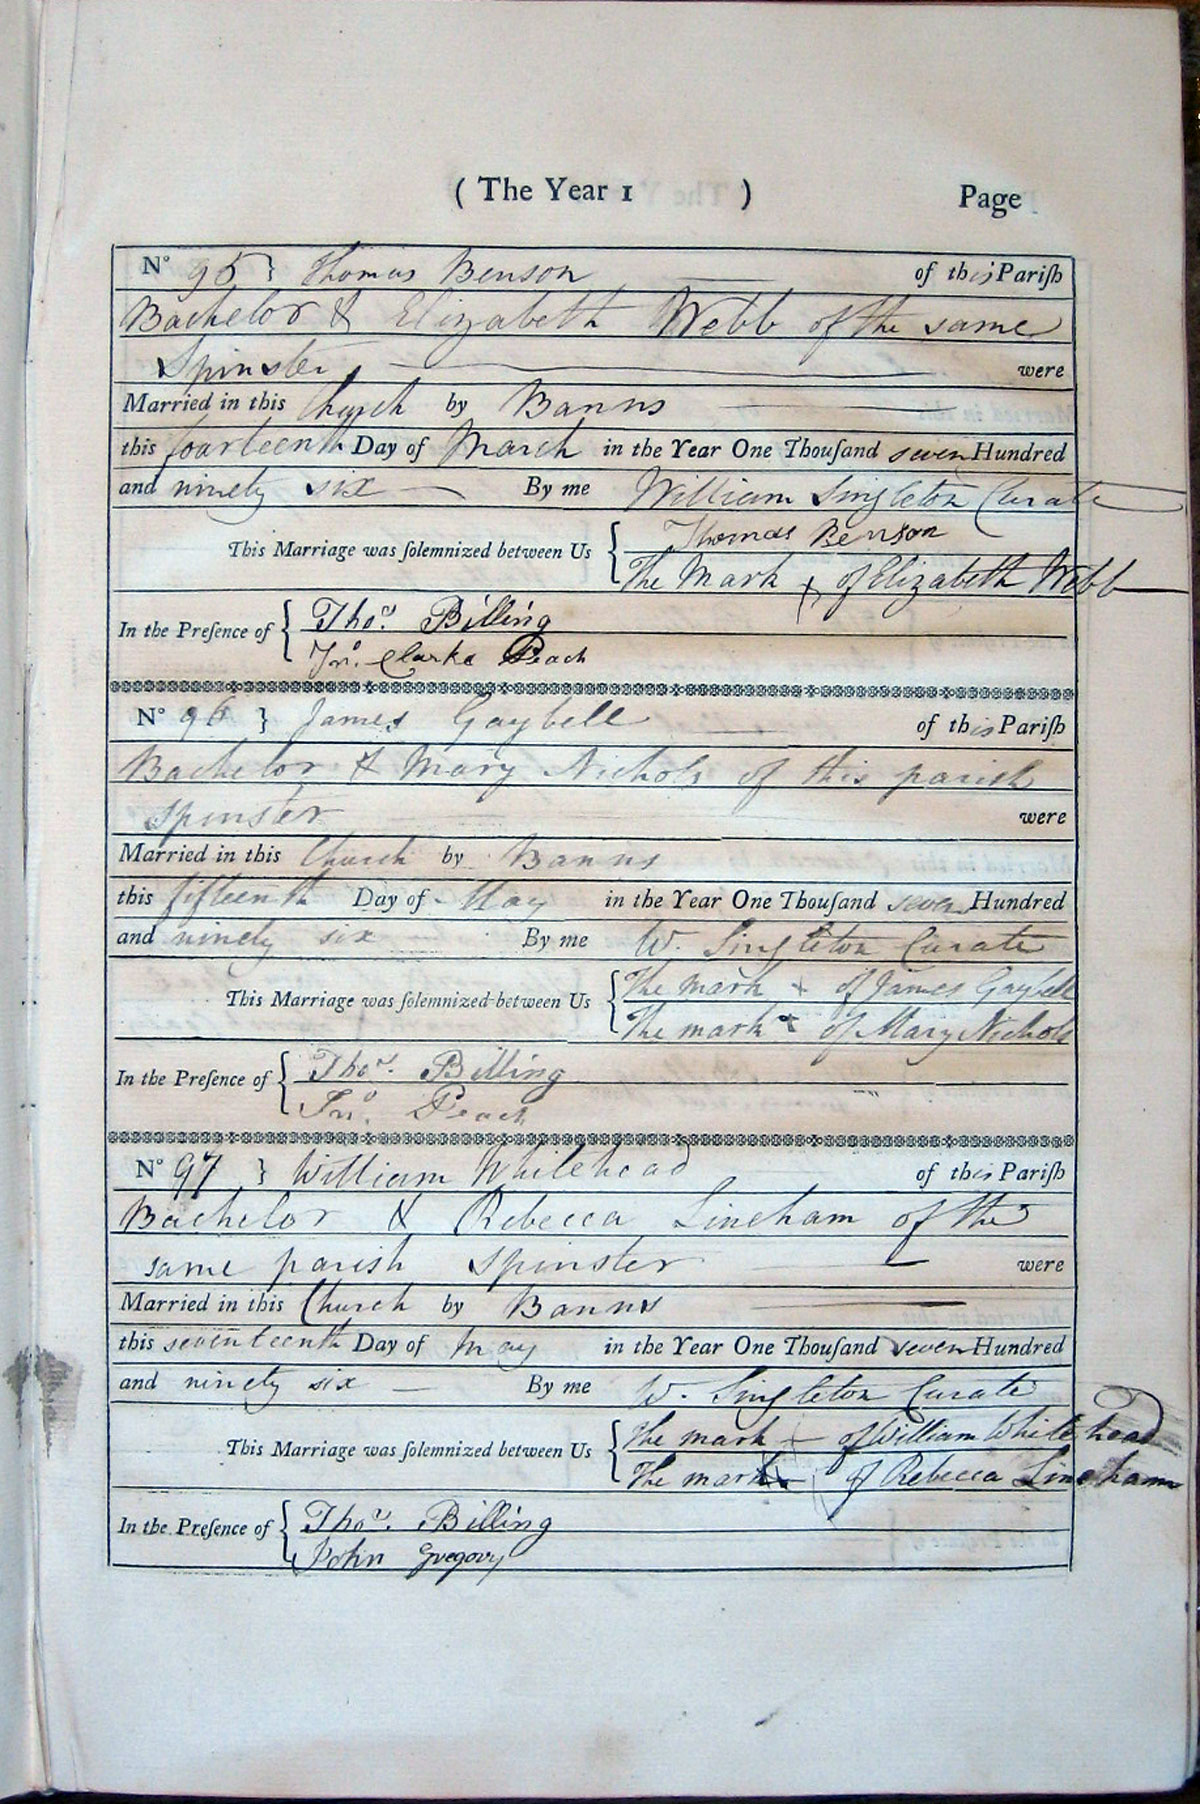 ( The Year 1 ) Page
N° 95 } Thomas Benson of this Pariſh
Bachelor & Elizabeth Webb of the same
Spinster were
Married in this Church by Banns
this fourteenth Day of March in the Year One Thouſand seven Hundred
and ninety six By me William Singleton Curate
This Marriage was ſolemnized between Us { Thomas Benson
The Mark + of Elizabeth Webb
In the Preſence of { Thos. Billing
Jno. Clarke Peach
N° 96 } James Gaybell of this Pariſh
Bachelor & Mary Nichols of this parish
Spinster were
Married in this Church by Banns
this fifteenth Day of May in the Year One Thouſand seven Hundred
and ninety six By me W. Singleton Curate
This Marriage was ſolemnized between Us { The mark + of James Gaybell
The mark + of Mary Nichols
In the Preſence of { Thos. Billing
Jno. Peach
N° 97 } William Whitehead of this Pariſh
Bachelor & Rebecca Lineham of the
same parish Spinster were
Married in this Church by Banns
this seventeenth Day of May in the Year One Thouſand seven Hundred
and ninety six By me W. Singleton Curate
This Marriage was ſolemnized between Us { The mark – of William Whitehead
The mark + of Rebecca Lineham
In the Preſence of { Thos. Billing
John Gregory